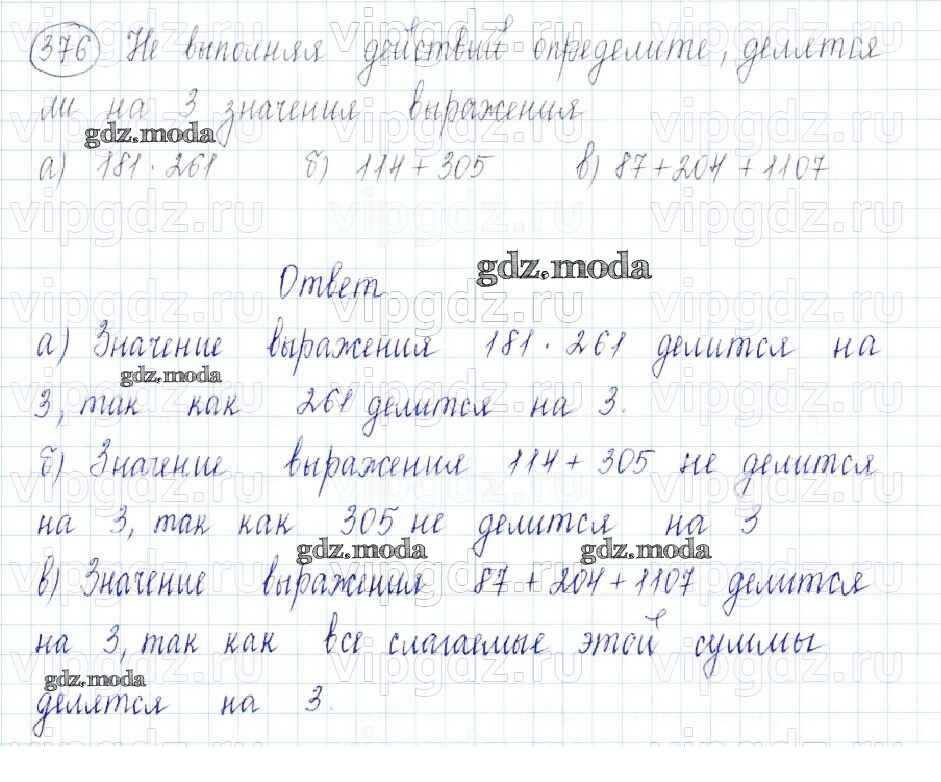 376 Не выполняя действий определите, делятся
ли на 3 значения выражения
gdz.moda
а) 181 · 261 б) 114 + 305 в) 87 + 204 + 1107
Ответ
gdz.moda
а) Значение выражения 181 · 261 делится на
gdz.moda
3, так как 261 делится на 3.
б) Значение выражения 114 + 305 не делится
на 3, так как 305 не делится на 3
gdz.moda gdz.moda
в) Значение выражения 87 + 204 + 1107 делится
на 3, так как все слагаемые этой суммы
gdz.moda
делятся на 3.
vipgdz.ru